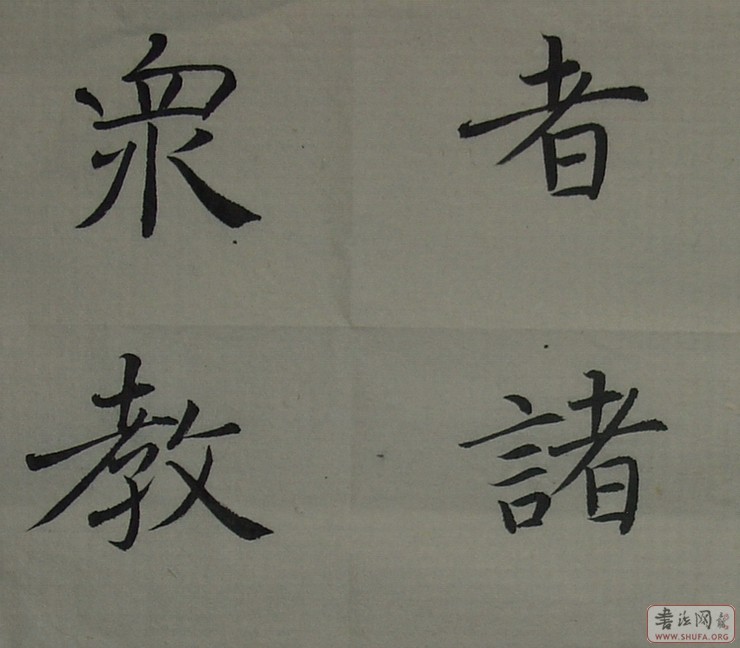 者諸
眾教
書法网
WWW.SHUFA.ORG